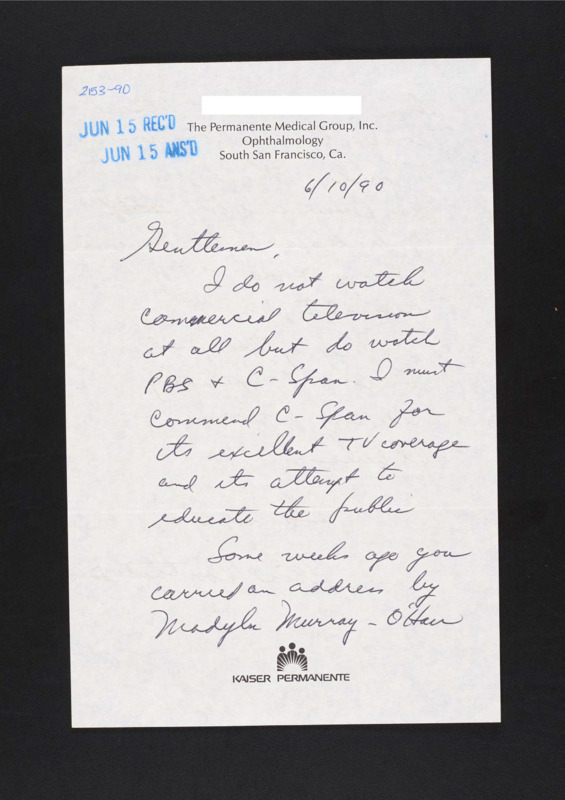 2153-90
JUN 15 REC'D
JUN 15 ANS'D
The Permanente Medical Group, Inc.
Ophthalmology
South San Francisco, Ca.
6/10/90
Gentlemen,
I do not watch
commercial television
at all but do watch
PBS & C-Span. I must
commend C-Span for
its excellent TV coverage
and its attempt to
educate the public
Some weeks ago you
carried an address by
Madyln Murray-O'Hair
KAISER PERMANENTE